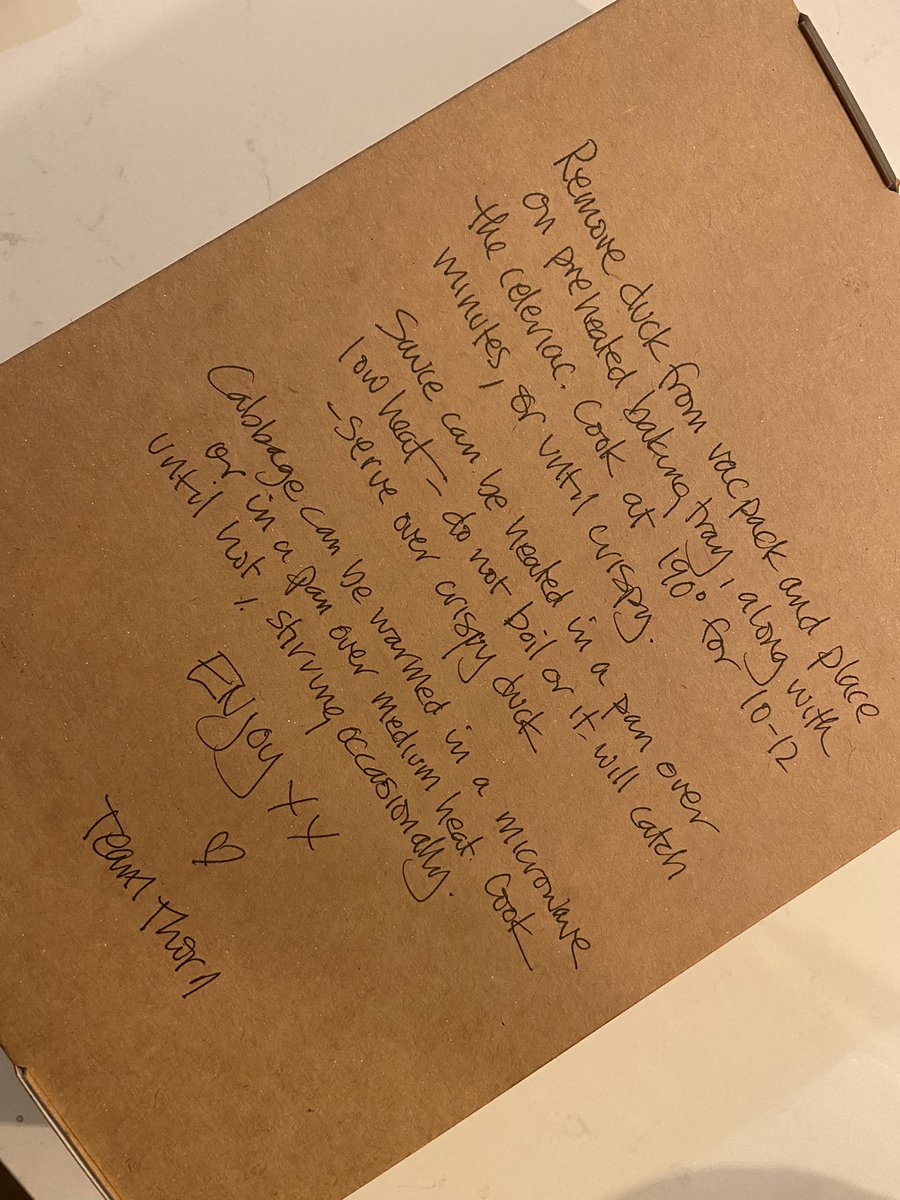 Remove duck from vacpack and place
on preheated baking tray, along with
the celeriac. Cook at 190° for 10-12
minutes, or until crispy.
Sauce can be heated in a pan over
low heat - do not boil or it will catch
- serve over crispy duck
Cabbage can be warmed in a microwave
or in a pan over medium heat. Cook
until hot, stirring occasionally.
ENJOY XX
♡
Team Thorn